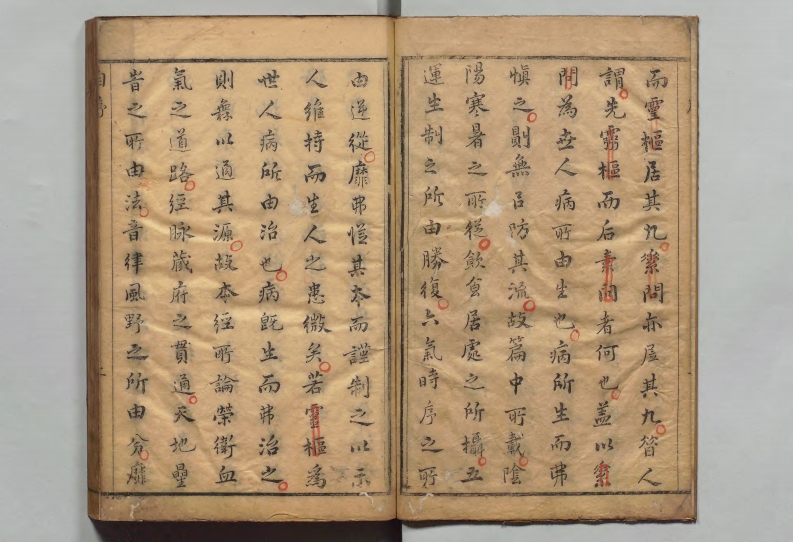 而靈樞居其九素問亦居其九昔人
謂先靈樞而后素問者何也蓋以素
問為世人病所由生也病所生而弗
慎之則無以防其流故篇中所載陰
陽寒暑之所從飲食居處之所攝五
運生制之所由勝復六氣時序之所
由逆從靡弗從其本而謹制之以示
人維持而生人之患微矣若靈樞為
世人病所由治也病既生而弗治之
則無以通其源故本經所論榮衛血
氣之道路經脉藏府之貫通天地星
昔之所由法音律風野之所由分靡
自序